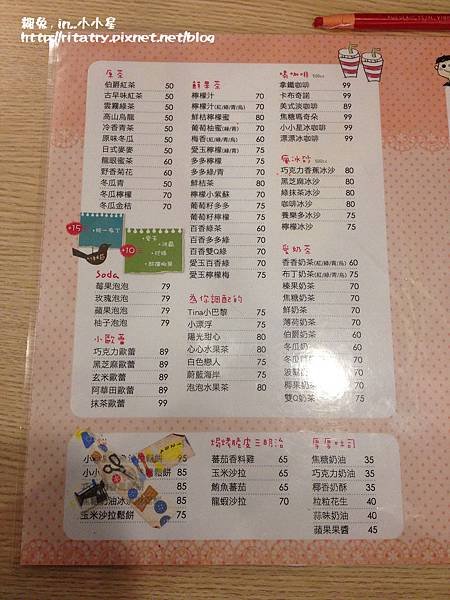 鞭兔. in..小小星
http://ritatry.pixnet.net/blog
原茶
伯爵紅茶 50
古早味紅茶 50
雲霧綠茶 50
高山烏龍 50
冷香青茶 50
原味冬瓜 50
日式麥麥 50
龍眼蜜茶 60
野香菊花 60
冬瓜青 50
冬瓜檸檬 70
冬瓜金桔 70
+15
+10
Soda
莓果泡泡 79
玫瑰泡泡 79
蘋果泡泡 79
柚子泡泡 79
小歐蕾
巧克力歐蕾 89
黑芝麻歐蕾 89
玄米歐蕾 89
阿華田歐蕾 89
抹茶歐蕾 99
鮮果茶
檸檬汁 70
檸檬汁(紅/綠/青/烏) 70
鮮桔檸檬蜜 80
葡萄柚蜜(綠/青) 80
梅香(紅/綠/青/烏) 60
愛玉檸檬 75
多多檸檬 75
多多綠/青 70
鮮桔茶 70
檸檬小紫蘇 70
葡萄籽多多 75
葡萄籽檸檬 75
百香綠茶 60
百香多多綠 70
百香雙Q綠 70
愛玉百香綠 70
愛玉檸檬梅 75
為你調配的
Tina小巴黎 75
小漂浮 75
陽光甜心 80
心心水果茶 80
白色戀人 75
蔚藍海岸 75
泡泡水果茶 80
喝咖啡 500cc
拿鐵咖啡 99
卡布奇諾 99
美式淡咖啡 89
焦糖瑪奇朵 99
小小星冰咖啡 99
漂漂冰咖啡 99
瘋冰沙 500cc
巧克力香蕉冰沙 80
黑芝麻冰沙 80
綠抹茶冰沙 80
咖啡冰沙 80
養樂多冰沙 75
檸檬冰沙 75
愛奶茶
香香奶茶(紅/綠/青/烏) 60
布丁奶茶(紅/綠/青/烏) 75
榛果奶茶 70
焦糖奶茶 70
鮮奶茶 70
薄荷奶茶 70
伯爵奶茶 60
冬瓜奶 60
椰果奶茶 70
雙Q奶茶 75
95
85
85
玉米沙拉鬆餅 75
焗烤脆皮三明治
蕃茄香料雞 65
玉米沙拉 65
鮪魚蕃茄 65
龍蝦沙拉 70
厚厚吐司
焦糖奶油 35
巧克力奶油 35
椰香奶酥 35
粒粒花生 40
蒜味奶油 40
蘋果果醬 45